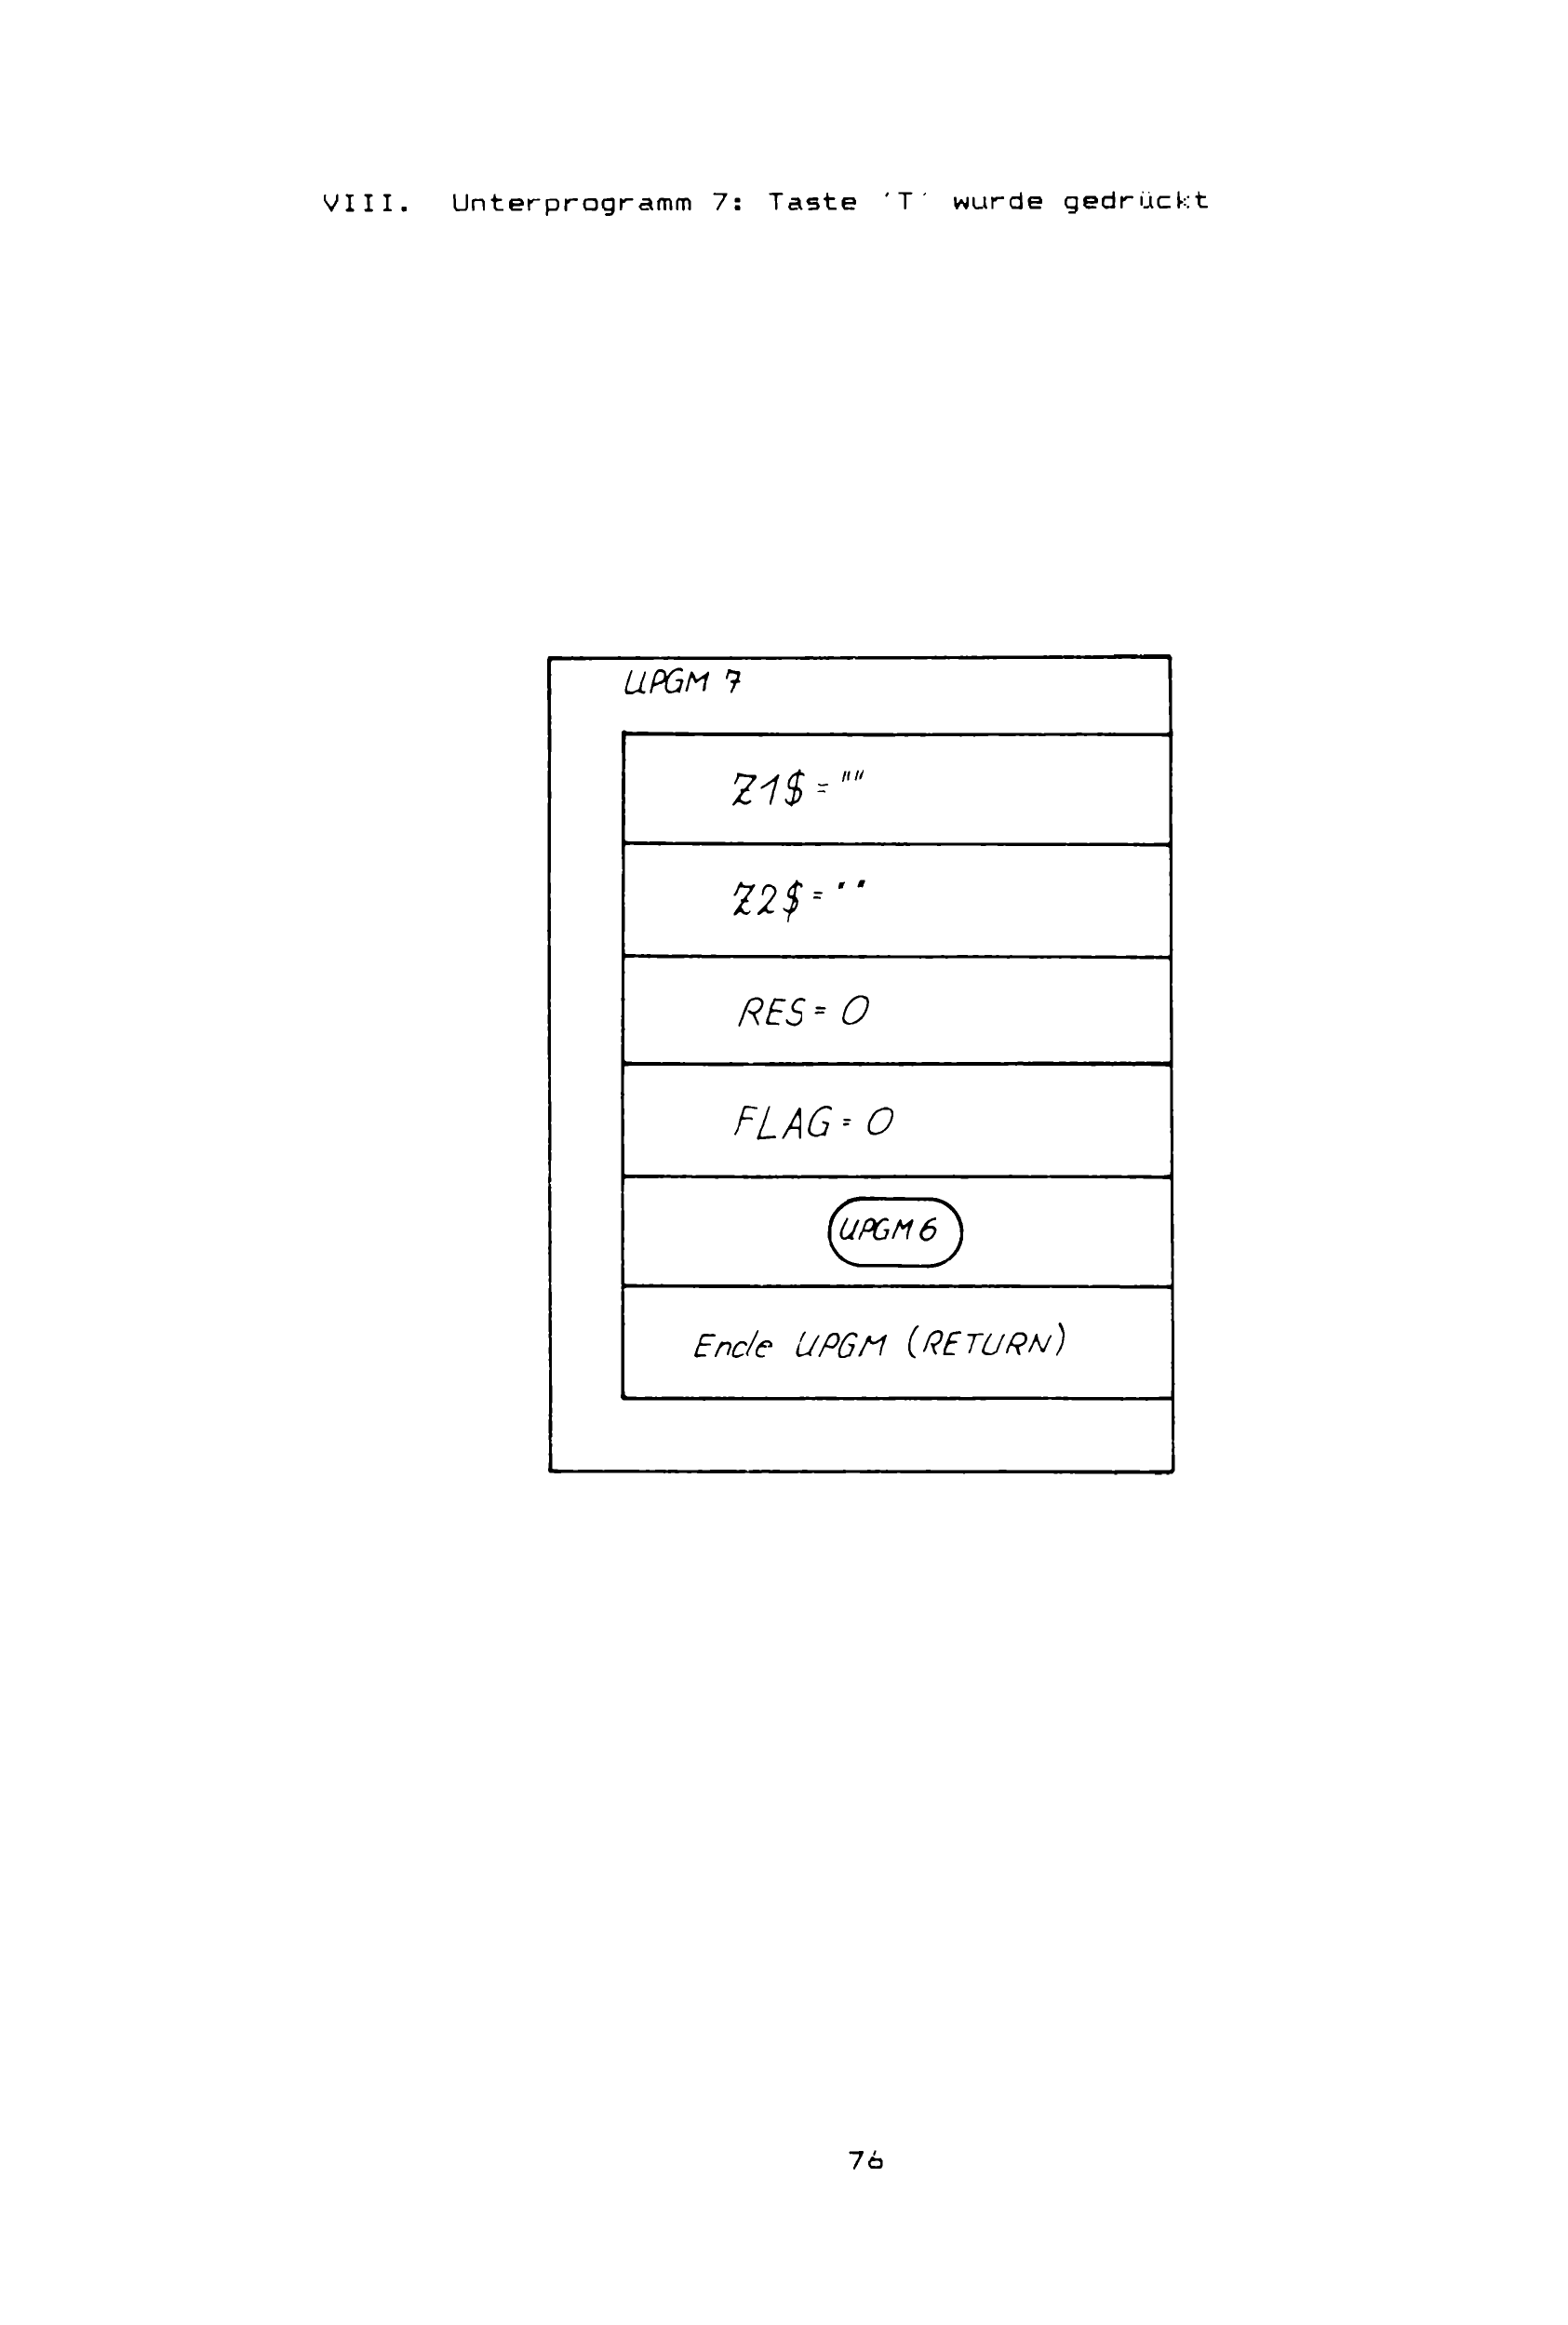 VIII. Unterprogramm 7: Taste 'T' wurde gedrückt
UPGM 7
Z1$ = ""
Z2$ = ""
RES = 0
FLAG = 0
UPGM 6
Ende UPGM (RETURN)
76